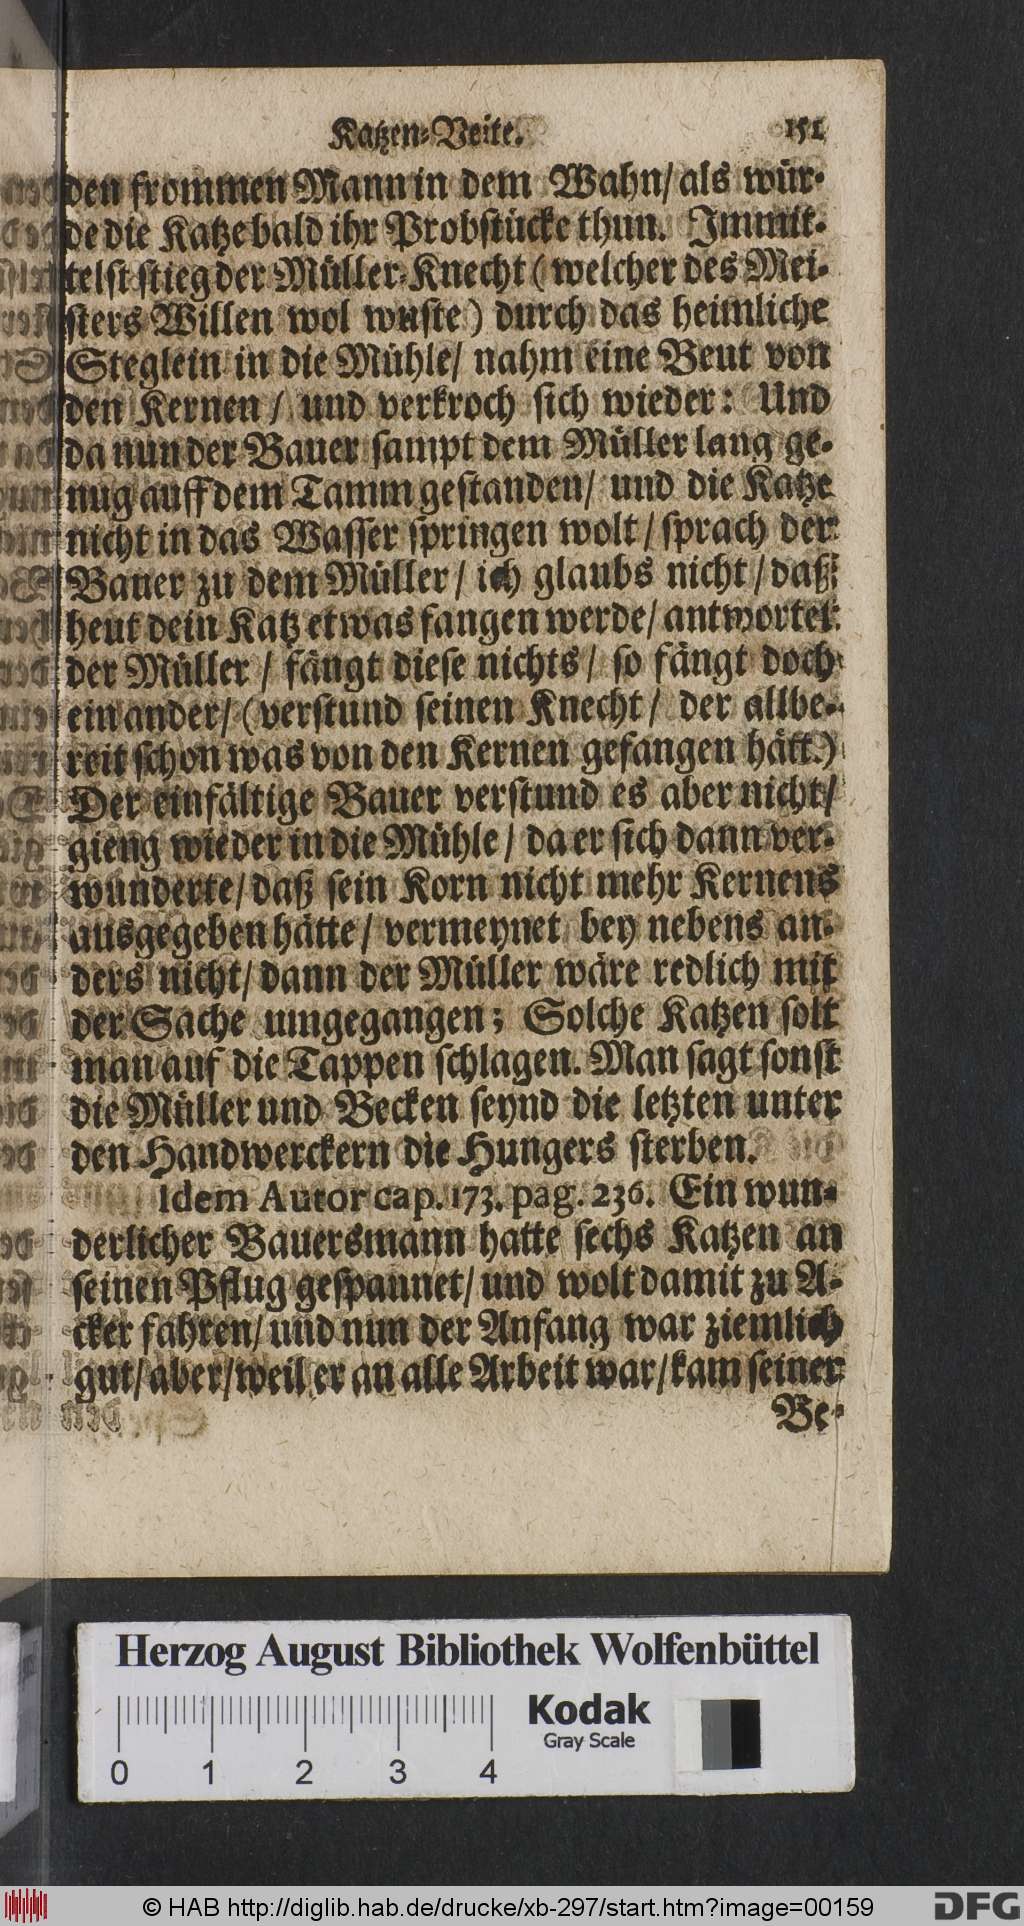 Katzen-Veite. 151
den frommen Mann in dem Wahn/ als wür-
de die Katze bald ihr Probstücke thun. Immit-
telst stieg der Müller-Knecht (welcher des Mei-
sters Willen wol wuste) durch das heimliche
Steglein in die Mühle/ nahm eine Beut von
den Kernen/ und verkroch sich wieder: Und
da nun der Bauer sampt dem Müller lang ge-
nug auff dem Tamm gestanden/ und die Katze
nicht in das Wasser springen wolt/ sprach der
Bauer zu dem Müller/ ich glaubs nicht/ daß
heut dein Katz etwas fangen werde/ antwortet
der Müller/ fängt diese nichts/ so fängt doch
ein ander/ (verstund seinen Knecht/ der allbe-
reit schon was von den Kernen gefangen hätt)
Der einfältige Bauer verstund es aber nicht/
gieng wieder in die Mühle/ da er sich dann ver-
wunderte/ daß sein Korn nicht mehr Kernens
ausgegeben hätte/ vermeynet bey nebens an-
ders nicht/ dann der Müller wäre redlich mit
der Sache umgegangen; Solche Katzen solt
man auf die Tappen schlagen. Man sagt sonst
die Müller und Becken seynd die letzten unter
den Handwerckern die Hungers sterben.
Idem Autor cap. 173. pag. 236. Ein wun-
derlicher Bauersmann hatte sechs Katzen an
seinen Pflug gespannet/ und wolt damit zu A-
cker fahren/ und nun der Anfang war ziemlich
gut/ aber/ weil er an alle Arbeit war/ kam seiner
Be-
Herzog August Bibliothek Wolfenbüttel
Kodak
Gray Scale
0 1 2 3 4
© HAB http://diglib.hab.de/drucke/xb-297/start.htm?image=00159
DFG